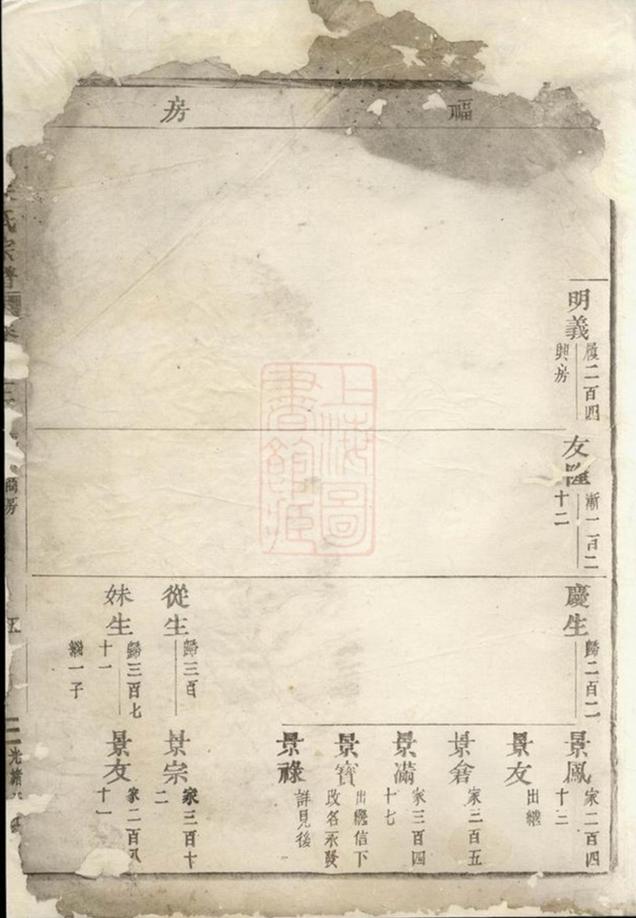 福房
明義
履二百四
興房
友
漸一百二
十二
慶生
歸二百二
景鳳
家二百四
十三
景友
出繼
景倉
家三百五
景滿
家三百四
十七
景寶
出繼信下
改名永發
景祿
詳見後
從生
歸三百
景宗
家三百十
二
妹生
歸三百七
十一
繼一子
景友
家二百八
十一
氏宗譜
房
五
光緒
上海圖
書館藏